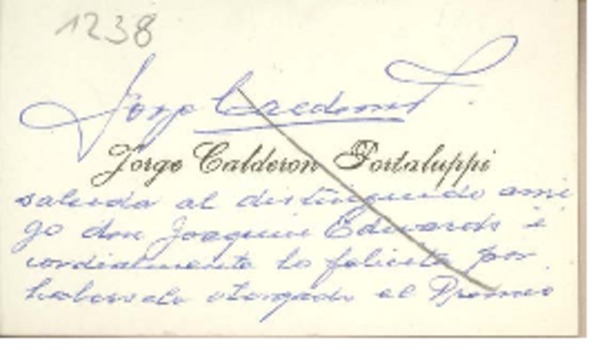 1238
Jorge
Jorge Calderon Portaluppi
saluda al distinguido ami
go don Joaquin Edwards i
cordialmente lo felicita por
haberselo otorgado el Premio